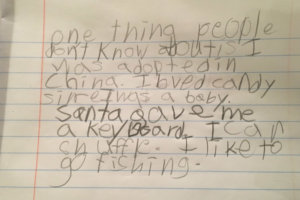 one thing people
dont know about is I
was adopted in
China. I loved candy
since I was a baby.
Santa gave me
a keyboard. I can
shuffle. I like to
go fishing.